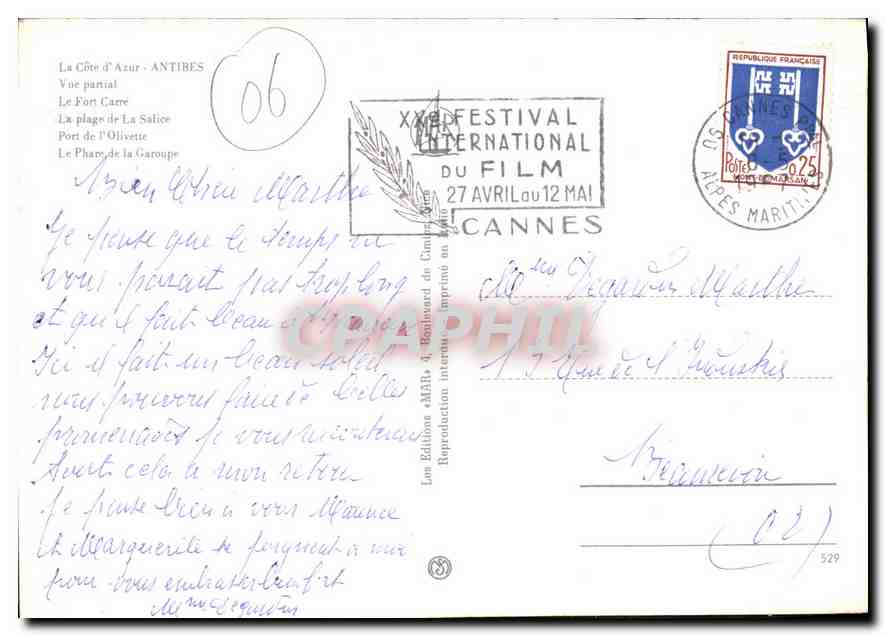 La Côte d'Azur - ANTIBES
Vue partial
Le Fort Carré
La plage de La Salice
Port de l'Olivette
Le Phare de la Garoupe
06
XXe FESTIVAL
INTERNATIONAL
DU FILM
27 AVRIL au 12 MAI
CANNES
MAR
REPUBLIQUE FRANÇAISE
POSTES 0,25
MONT-DE-MARSAN
CANNES
ALPES MARITIMES
Bien Chère Marthe
Je pense que le temps ne
vous parait pas trop long
et qu'il fait beau à
Ici il fait un beau soleil
nous pouvons faire de belles
promenades je vous raconterai
tout cela à mon retour
Je pense bien à vous Maurice
et Marguerite se joignent à moi
pour vous embrasser bien fort
Mme
Les Editions «MAR» 4, Boulevard de Cimiez, Nice
Reproduction interdite - Imprimé en Italie
CPAPHIL
Marthe
Rue de l'Industrie
Beaurevoir
(02)
529